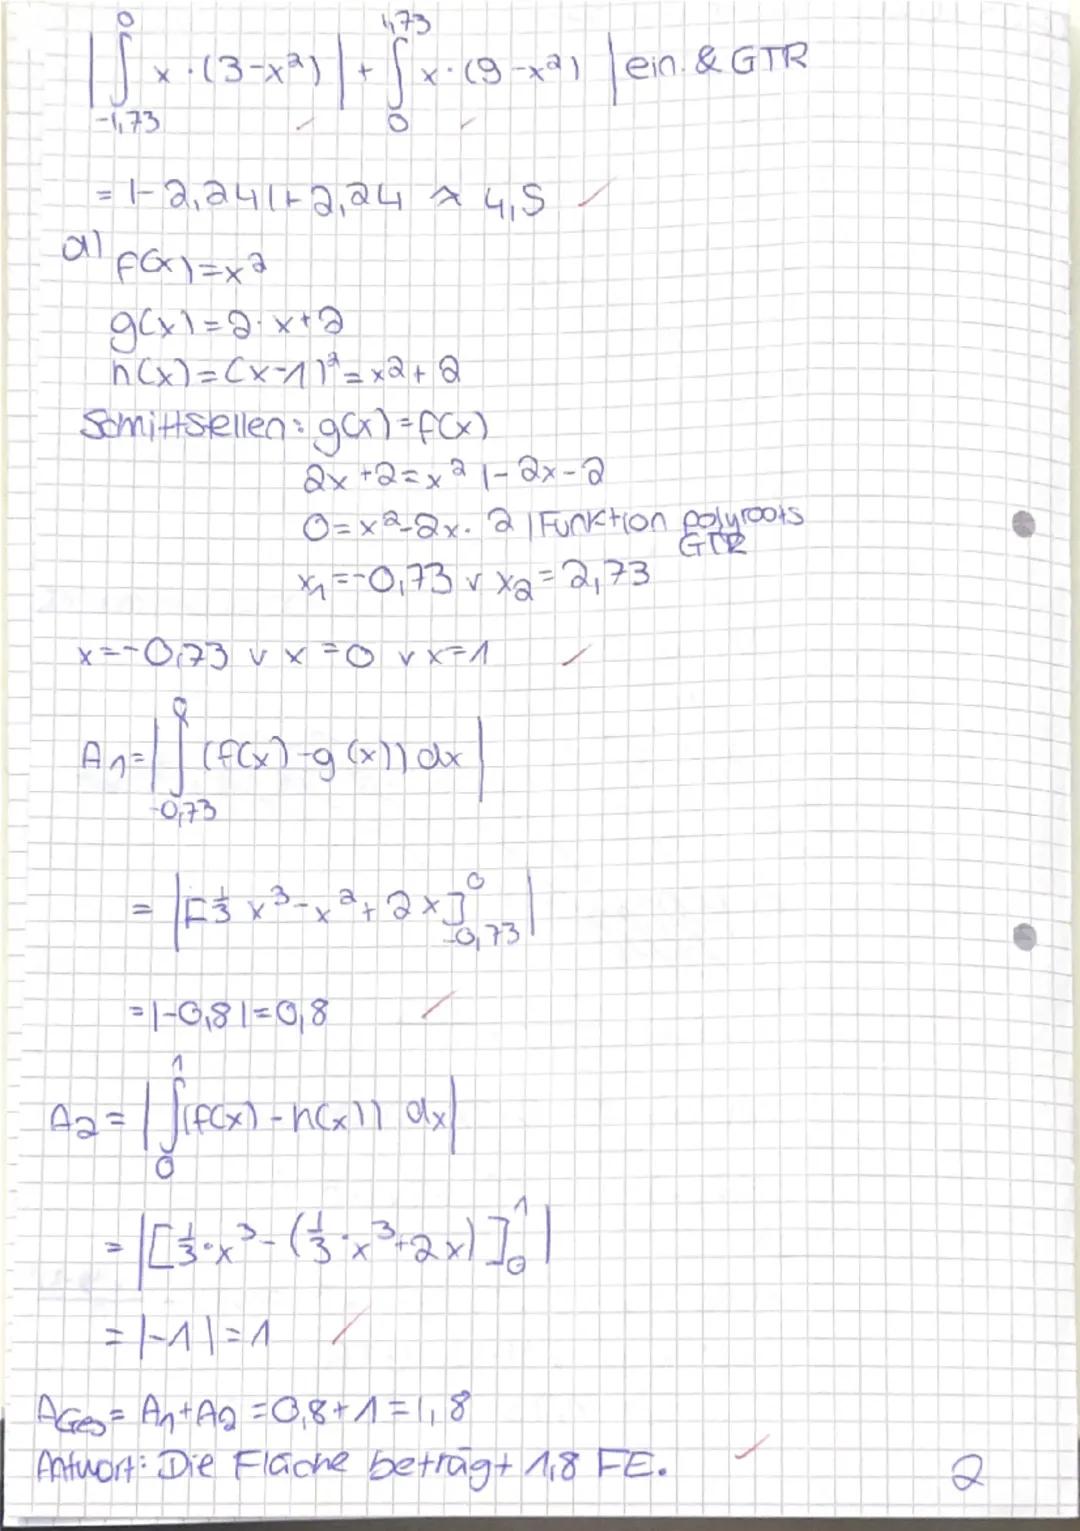 |∫₋₁,₇₃⁰ x·(3-x²)| + ∫₀¹,⁷³ x·(9-x²) | ein. & GTR
= |-2,24|+2,24 ≈ 4,5
a) f(x)=x²
g(x)=2·x+2
h(x)=(x-1)²=x2+2
Schnittstellen: g(x)=f(x)
2x+2=x² |-2x-2
0=x²-2x-2 | Funktion polyroots
GTR
x₁=-0,73 v x₂=2,73
x=-0,73 v x=0 v x=1
A₁=|∫₋₀,₇₃⁰ (f(x)-g(x)) dx|
= |[⅓ x³-x²+2x]₋₀,₇₃⁰|
=|-0,8|=0,8
A₂=|∫₀¹(f(x)-h(x)) dx|
= |[⅓·x³-(⅓·x³+2x)]₀¹|
= |-1|=1
AGes=A₁+A₂=0,8+1=1,8
Antwort: Die Fläche beträgt 1,8 FE.
2